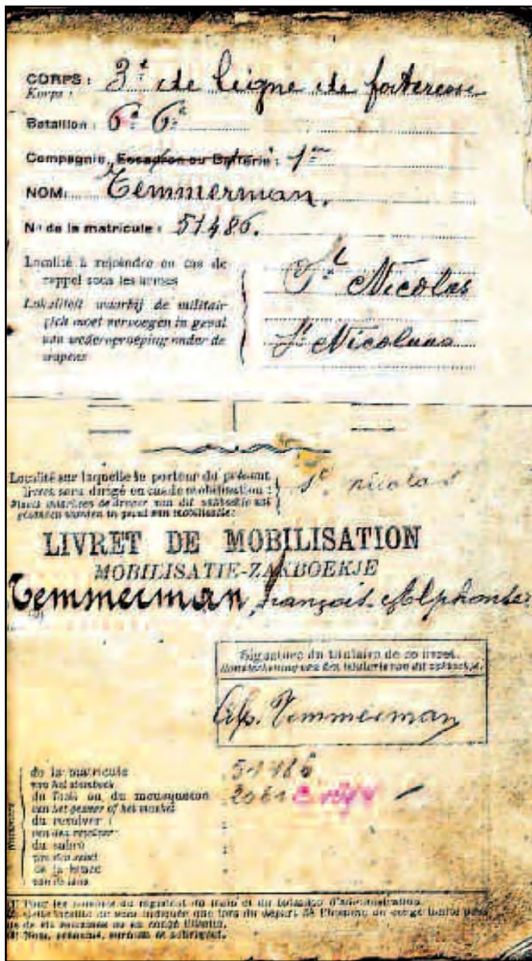 CORPS : 3e de ligne de forteresse
Korps :
Bataillon : 6e 6e
Compagnie, Escadron ou Batterie : 1re
NOM: Temmerman.
No de la matricule : 51486.
Localité à rejoindre en cas de
rappel sous les armes
St Nicolas
Lokaliteit waarbij de militair
zich moet vervoegen in geval
van wederoproeping onder de
wapens
St Nicolaas
Localité sur laquelle le porteur du présent
livret sera dirigé en cas de mobilisation :
St nicolas
LIVRET DE MOBILISATION
MOBILISATIE-ZAKBOEKJE
Temmerman, françois Alphonse
Signature du titulaire de ce livret.
Alp. Temmerman
de la matricule 51486
van het stamboek
du fusil ou du mousqueton 2061
van het geweer of het musket
du revolver :
van den revolver
du sabre
van den sabel
de la lance
van de lans
(1) Pour les hommes du régiment du train et du bataillon d'administration
(3) Nom, prénoms, surnom et sobriquet.